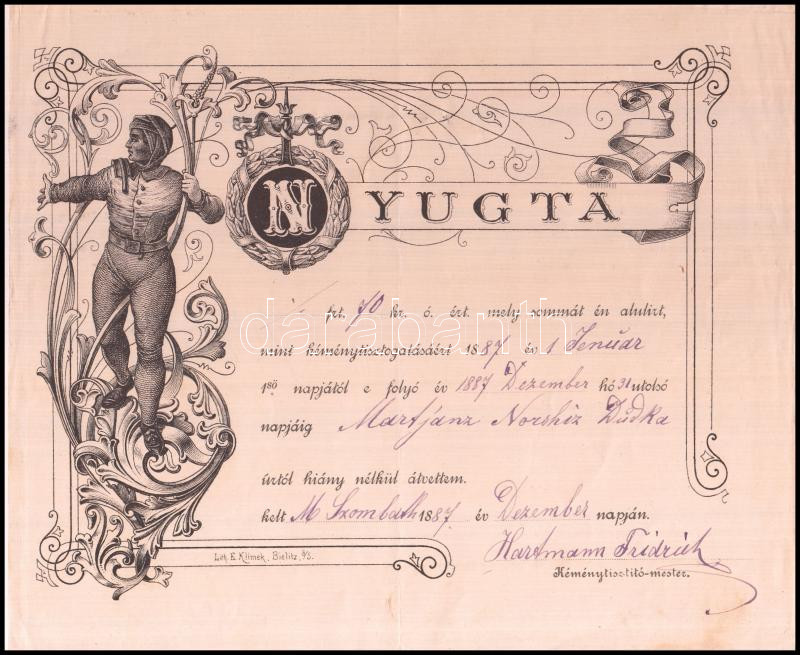 NYUGTA
frt. 70 kr. ó. ért. mely sommát én alulirt,
mint kéménytisztogatásáért 1887 év 1 Jenuar
1ső napjától e folyó év 1887 Dezember hó 31 utolsó
napjáig Martjanz
úrtól hiány nélkül átvettem.
kelt M Szombath 1887. év Dezember napján.
Hartmann Fridrich
Kéménytisztitó-mester.
Lith. E. Klimek, Bielitz, ő/S.
darabanth